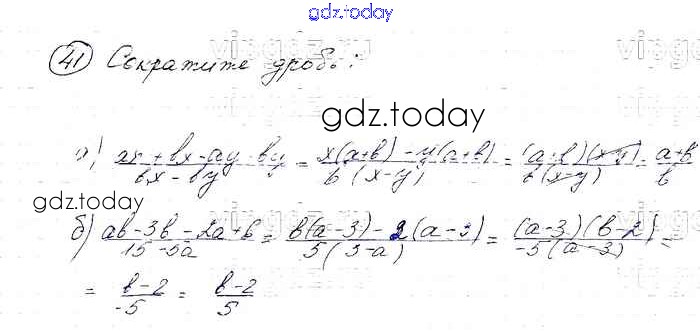 gdz.today
41 Сократите дробь:
gdz.today
а) (ax + bx - ay - by)/(bx - by) = (x(a+b) - y(a+b))/(b(x-y)) = ((a+b)(x-y))/(b(x-y)) = (a+b)/b
gdz.today
б) (ab - 3b - 2a + 6)/(15 - 5a) = (b(a-3) - 2(a-3))/(5(3-a)) = ((a-3)(b-2))/(-5(a-3)) =
= (b-2)/(-5) = (b-2)/5